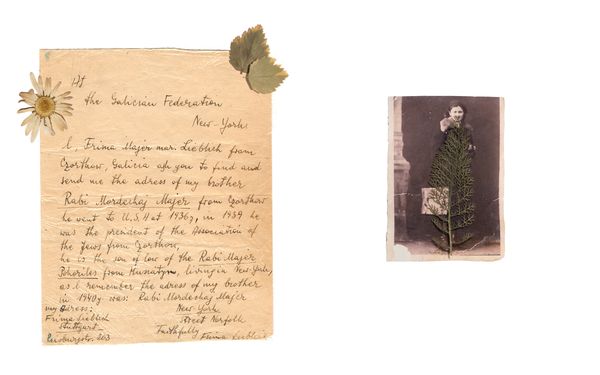 the Galician Federation
New-York
I, Frima Majer mar. Lieblich from
Czortkow, Galicia ask you to find and
send me the adress of my brother
Rabi Mordechaj Majer from Czortkow
he went to U.S.A at 1936y, in 1939 he
was the president of the Association of
the Jews from Czortkow,
he is the son of low of the Rabi Majer
from Husiatyn, living in New-York,
as I remember the adress of my brother
in 1940y was: Rabi Mordechaj Majer
New-York
Street Norfolk
Faithfully
Frima Lieblich
my adress:
Frima Lieblich
Stuttgart
203